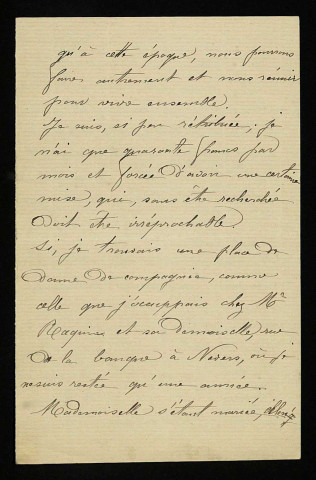 qu'à cette époque, nous pourrons
faire autrement et nous réunir
pour vivre ensemble.
Je suis, si peu rétribuée; je
n'ai que quarante francs par
mois et forcée d'avoir une certaine
mise, que, sans être recherchée
doit être irréprochable.
Si, je trouvais une place de
dame de compagnie, comme
celle que j'occuppais chez Mr
et sa demoiselle, rue
de la banque à Nevers, où je
ne suis restée qu'une année.
Mademoiselle s'étant mariée,